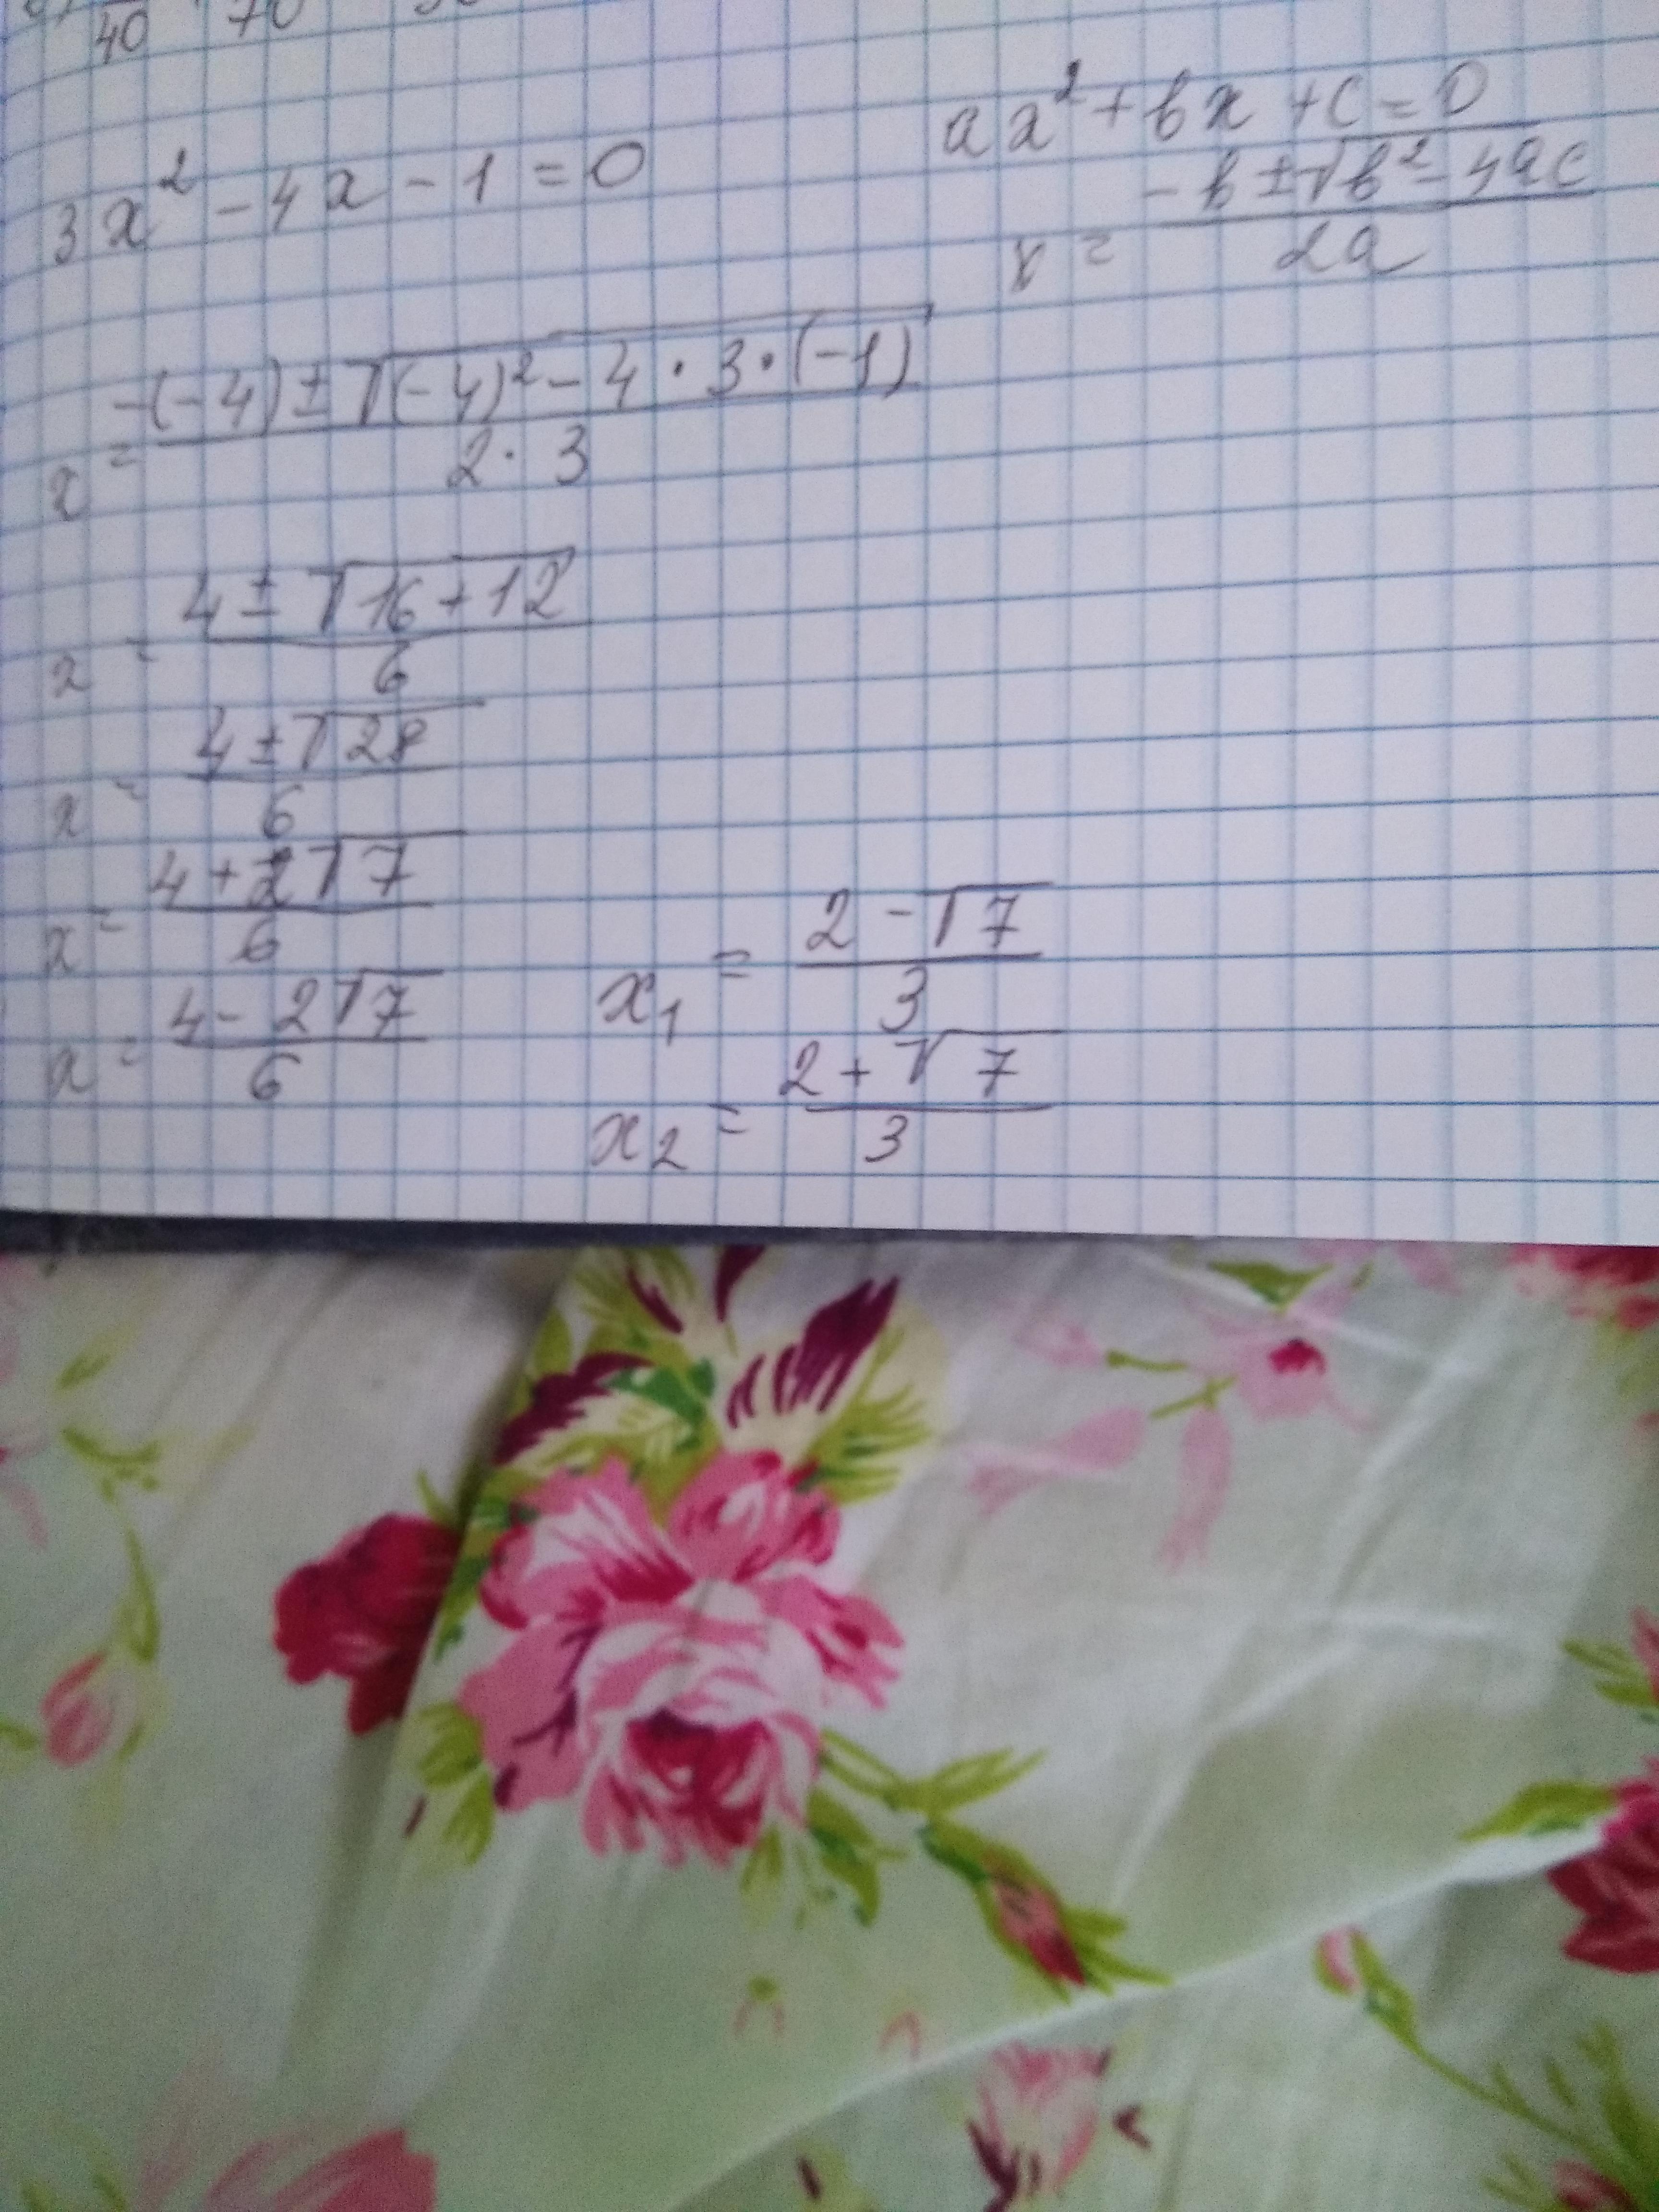 40 70
3x² - 4x - 1 = 0
ax² + bx + c = 0
x = (-b ± √(b² - 4ac)) / 2a
x = (-(-4) ± √((-4)² - 4 · 3 · (-1))) / (2 · 3)
x = (4 ± √(16 + 12)) / 6
x = (4 ± √28) / 6
x = (4 + 2√7) / 6
x = (4 - 2√7) / 6
x₁ = (2 - √7) / 3
x₂ = (2 + √7) / 3